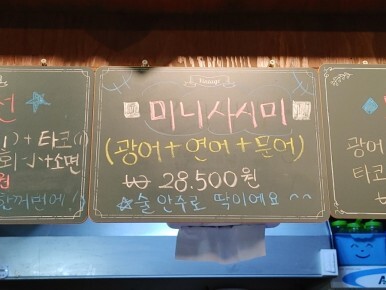 선
1) + 타코(1)
회 小 + 소면
원
한꺼번에!
미니사시미
(광어+연어+문어)
₩ 28.500원
☆술 안주로 딱이에요 ^^
광어
타코
₩